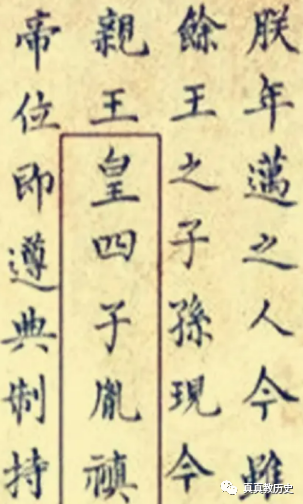 朕年邁之人今雖
餘王之子孫現今
親王皇四子胤禛
帝位即遵典制持
真真教历史